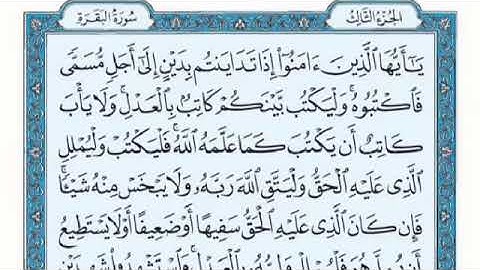 الجزء الثالث
سورة البقرة
يَـٰٓأَيُّهَا ٱلَّذِينَ ءَامَنُوٓا۟ إِذَا تَدَايَنتُم بِدَيْنٍ إِلَىٰٓ أَجَلٍ مُّسَمًّى
فَٱكْتُبُوهُ ۚ وَلْيَكْتُب بَّيْنَكُمْ كَاتِبٌۢ بِٱلْعَدْلِ ۚ وَلَا يَأْبَ
كَاتِبٌ أَن يَكْتُبَ كَمَا عَلَّمَهُ ٱللَّهُ ۚ فَلْيَكْتُبْ وَلْيُمْلِلِ
ٱلَّذِى عَلَيْهِ ٱلْحَقُّ وَلْيَتَّقِ ٱللَّهَ رَبَّهُۥ وَلَا يَبْخَسْ مِنْهُ شَيْـًٔا ۚ
فَإِن كَانَ ٱلَّذِى عَلَيْهِ ٱلْحَقُّ سَفِيهًا أَوْ ضَعِيفًا أَوْ لَا يَسْتَطِيعُ
أَن يُمِلَّ هُوَ فَلْيُمْلِلْ وَلِيُّهُۥ بِٱلْعَدْلِ ۚ وَٱسْتَشْهِدُوا۟ شَهِيدَيْنِ